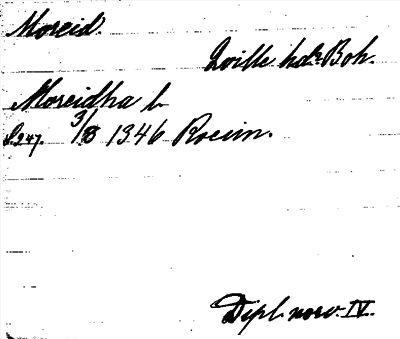 Moreid.
Qville hd. Boh.
Moreidha l.
S.247. 3/8 1346 Roeim.
Dipl. norv. IV.